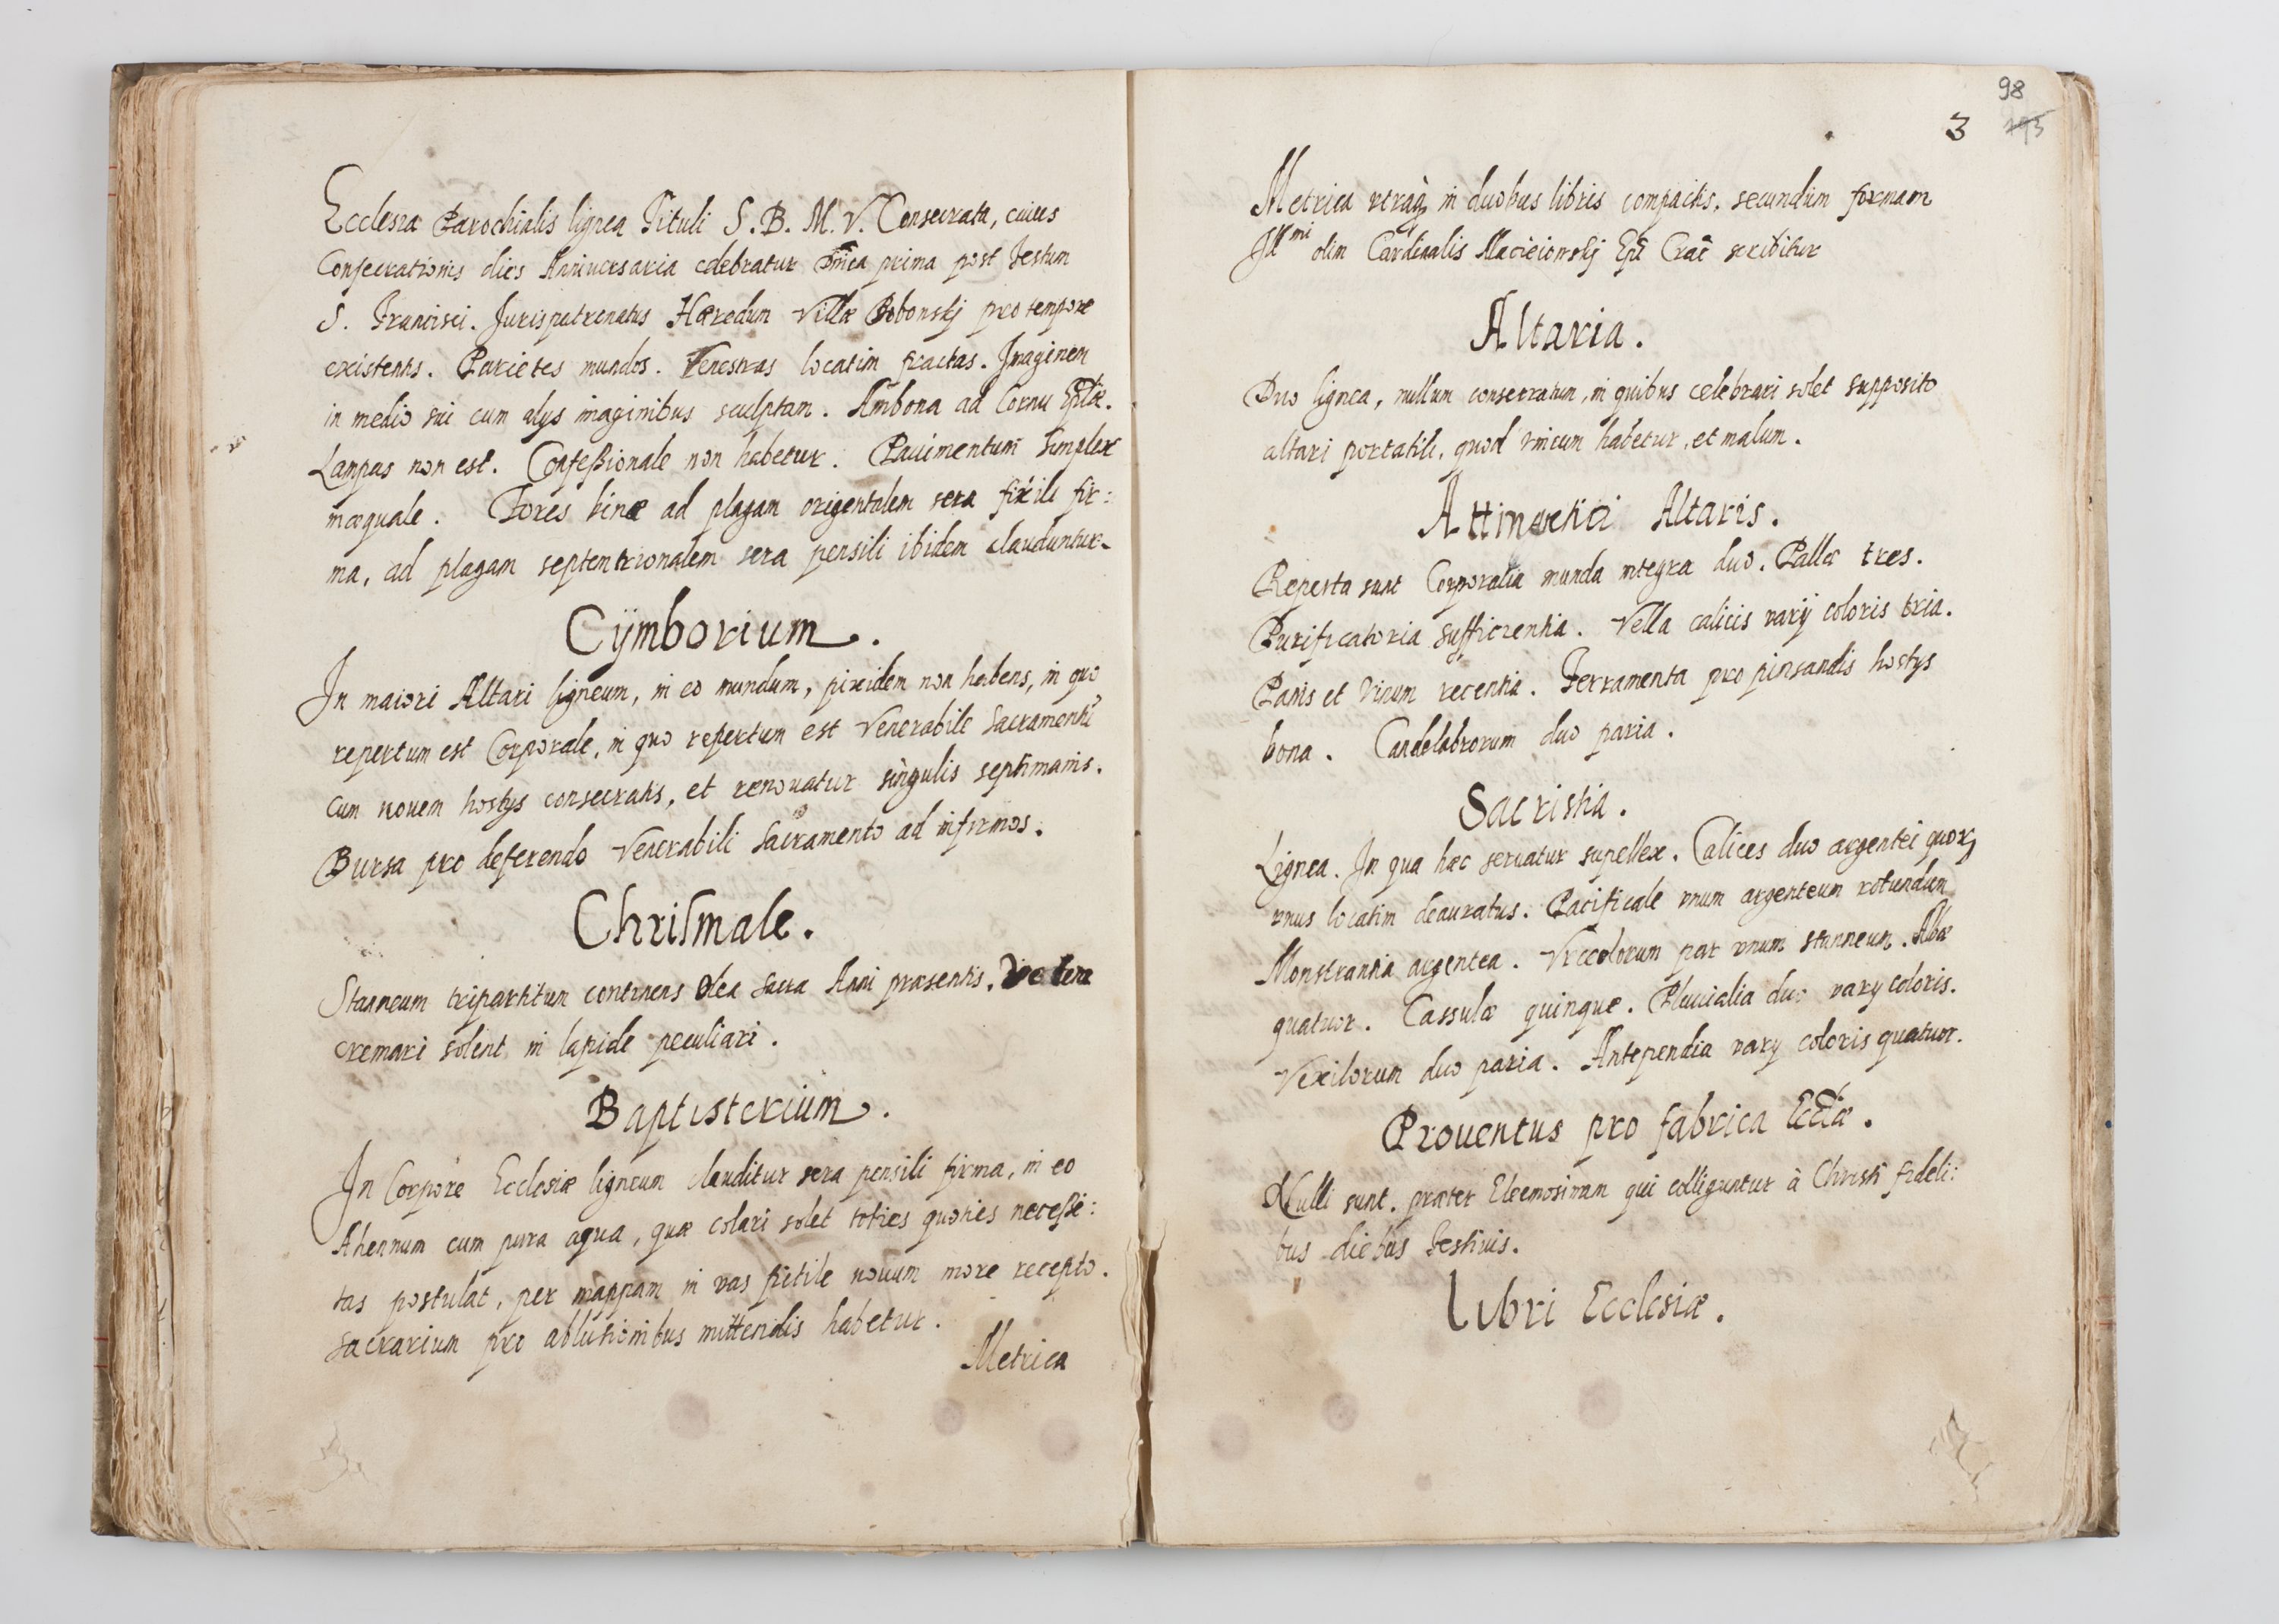 Ecclesia Parochialis lignea Tituli S. B. M. V. Consecrata, cuius
Consecrationis dies Anniversaria celebratur Dnica prima post Festum
S. Francisci. Jurispatronatus Hæredum Villæ Bobonskj pro tempore
existentis. Parietes mundos. Fenestras locatim fractas. Imaginem
in medio sui cum alys imaginibus sculptam. Ambona ad Cornu Eplæ.
Lampas non est. Confeßionale non habetur. Pauimentum simplex
inæquale. Fores binæ ad plagam origentalem sera fixili fir:
ma, ad plagam septentrionalem sera pensili ibidem clauduntur.
Cÿmborium.
In maiori Altari ligneum, in eo mundum, pixidem non habens, in quo
repertum est Corporale, in quo repertum est Venerabile Sacramentũ
cum nouem hostys consecratis, et renouatur singulis septimanis.
Bursa pro deferendo Venerabili Sacramento ad infirmos.
Chrismale.
Stanneum tripartitum continens Olea Sacra Anni præsentis. Vetera
cremari solent in lapide peculiari.
Baptisterium.
In Corpore Ecclesiæ ligneum clauditur sera pensili firma, in eo
Ahennum cum pura aqua, quæ colari solet toties quoties neceßi:
tas postulat, per mappam in vas fictile nouum more recepto.
Sacrarium pro ablutionibus mittendis habetur.
Metrica
98
3 195
Metrica vtraq in duobus libris compactis, secundum formam
Illmi olim Cardinalis Macieiowskj Epĩ Crac̃ scribitur
Altaria.
Duo lignea, nullum consecratum, in quibus celebrari solet supposito
altari portatili, quod vnicum habetur, et malum.
Attinentia Altaris.
Reperta sunt Corporalia munda integra duo. Pallæ tres.
Purificatoria sufficientia. Vella calicis varÿ coloris tria.
Panis et Vinum recentia. Ferramenta pro pinsandis hostys
bona. Candelabrorum duo paria.
Sacristia.
Lignea. In qua hæc seruatur supellex. Calices duo argentei quor,
vnus locatim deauratus. Pacificale vnum argenteum rotundum
Monstrantia argentea. Vrceolorum par vnum stanneum. Albæ
quatuor. Cassulæ quinque. Pluuialia duo vary coloris.
Vexilorum duo paria. Antependia vary coloris quatuor.
Prouentus pro fabrica Ecclæ.
Nulli sunt. præter Eleemosinam qui colliguntur à Christi fideli:
bus diebus Festiuis.
Libri Ecclesiæ.